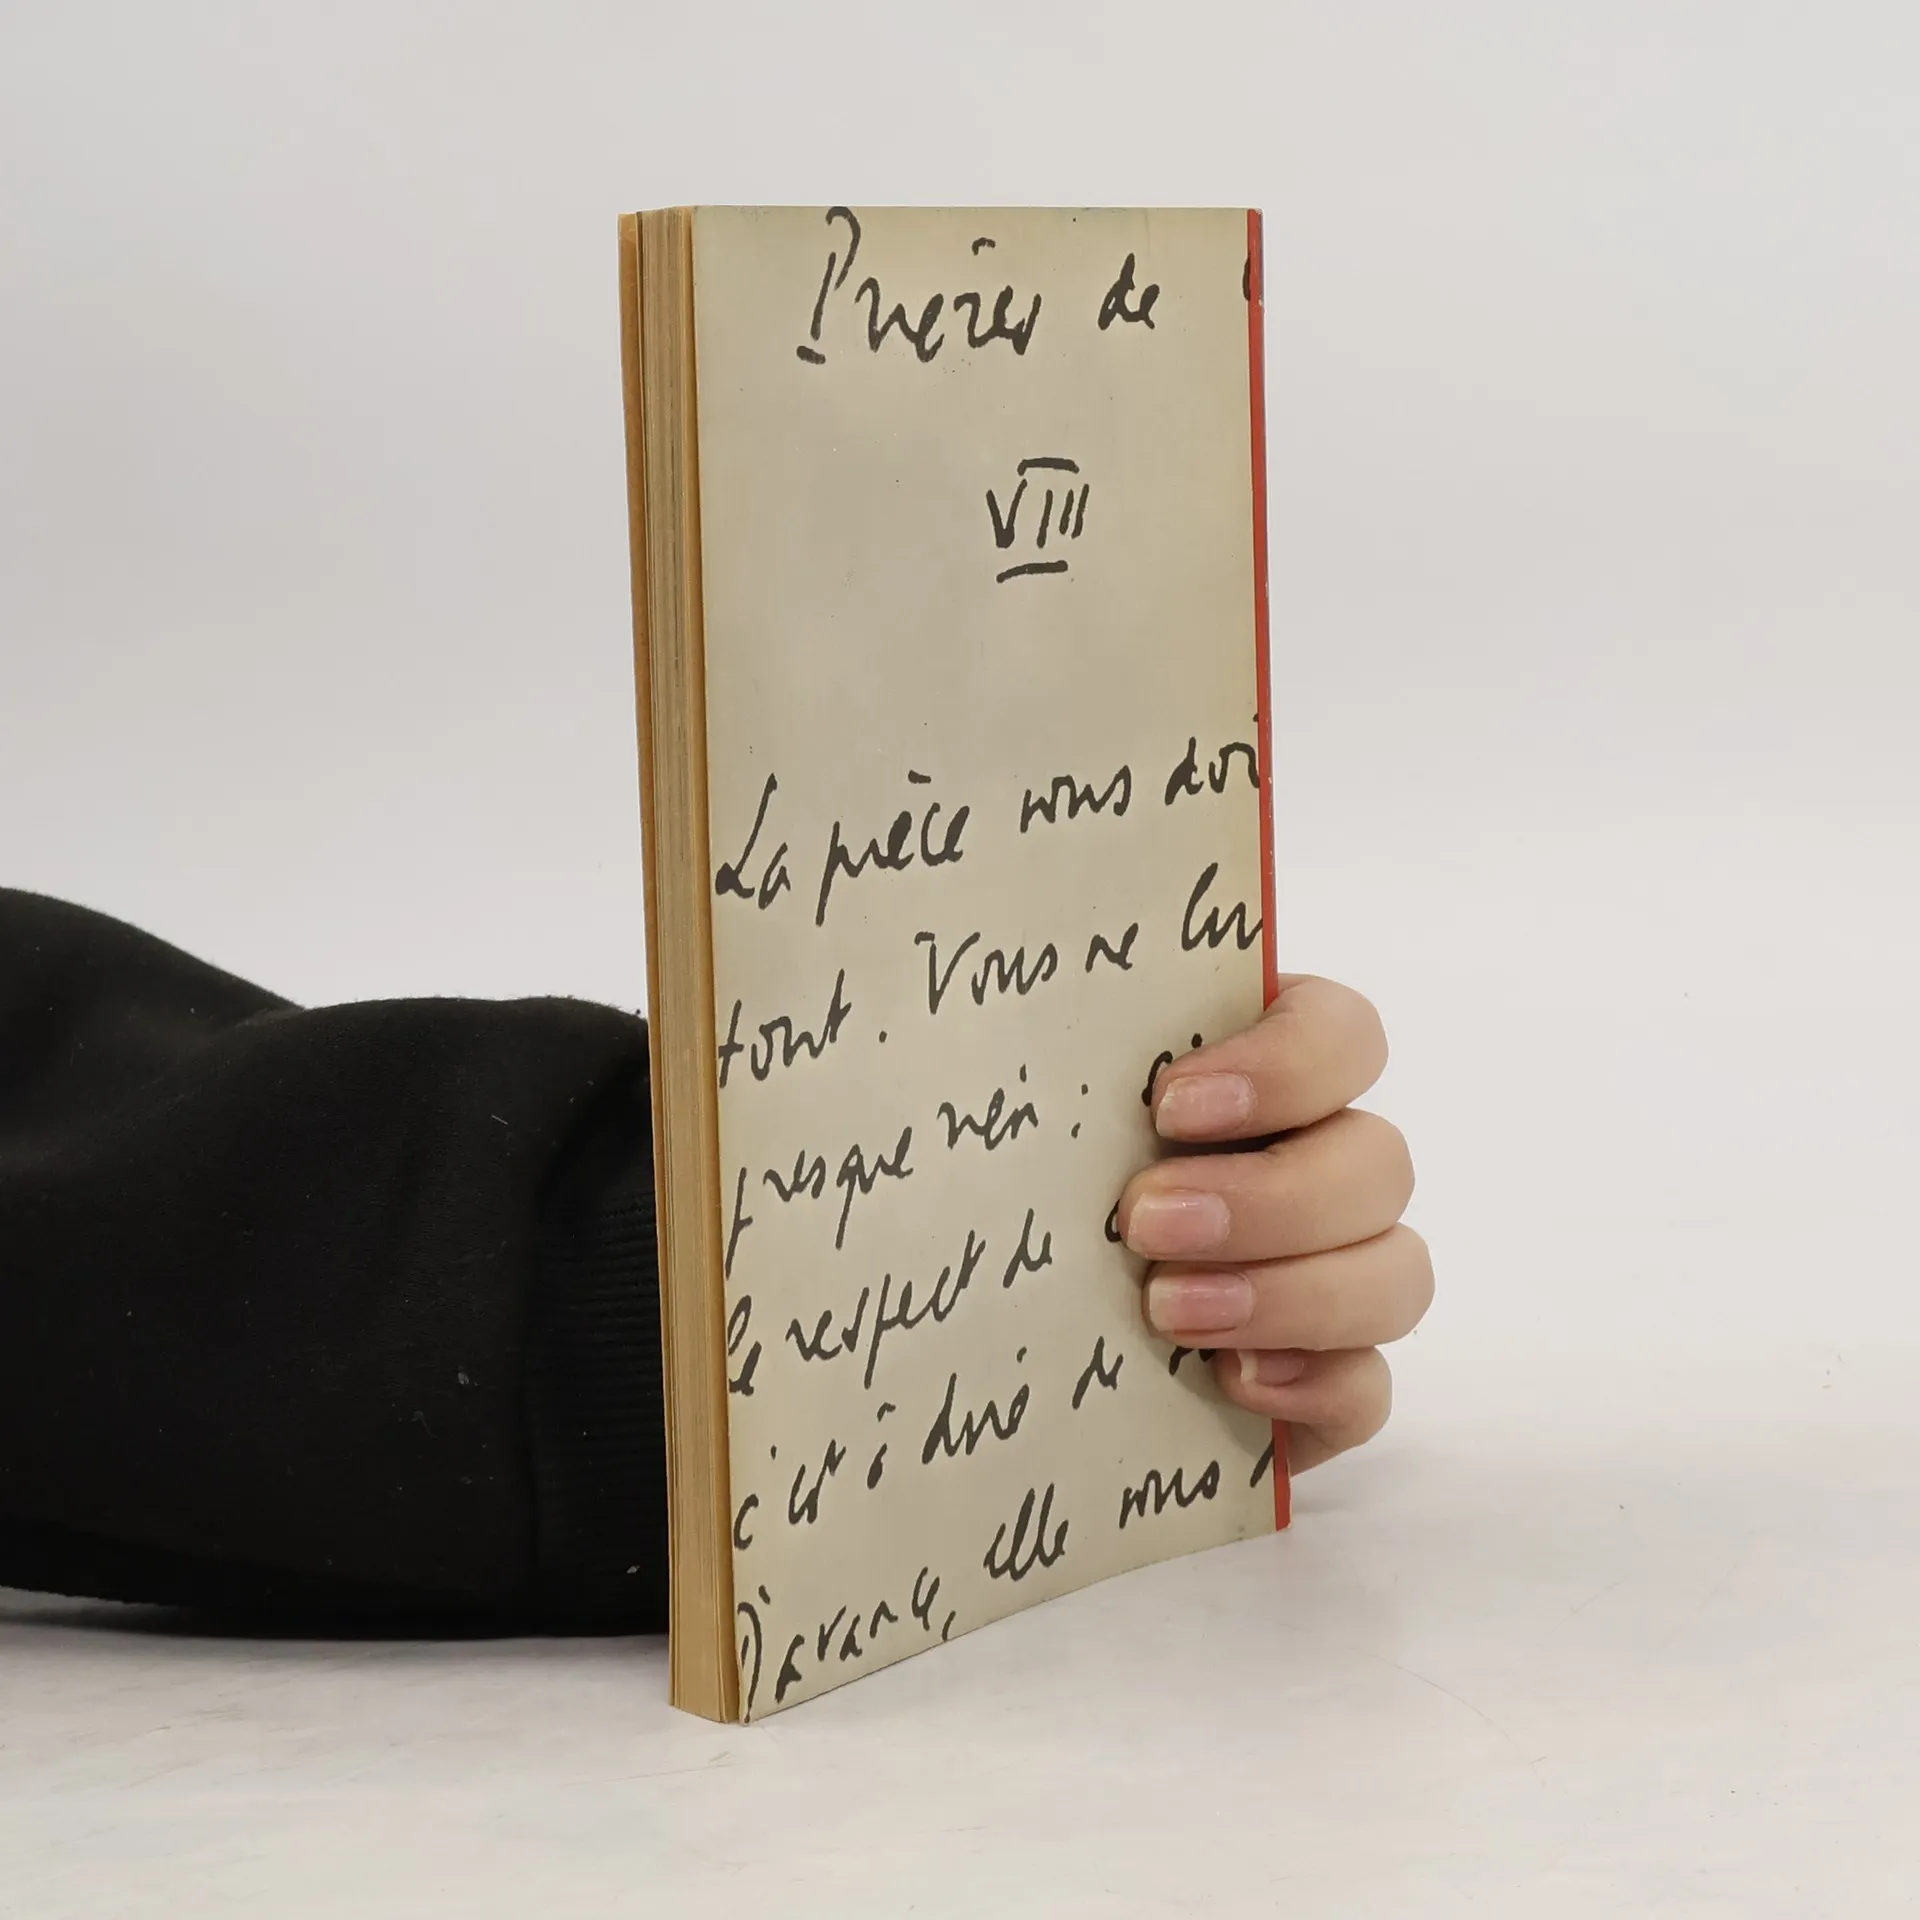 Prières de
VIII
La pièce vous doi
tout. Vous ne lui
presque rien :
le respect de
c'est à dire de
D'avance, elle vous